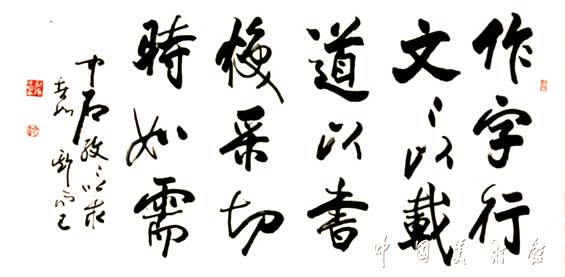 作字行
文〻以載
道以書
焕采切
時如需
中石孜〻以求
中國美術館